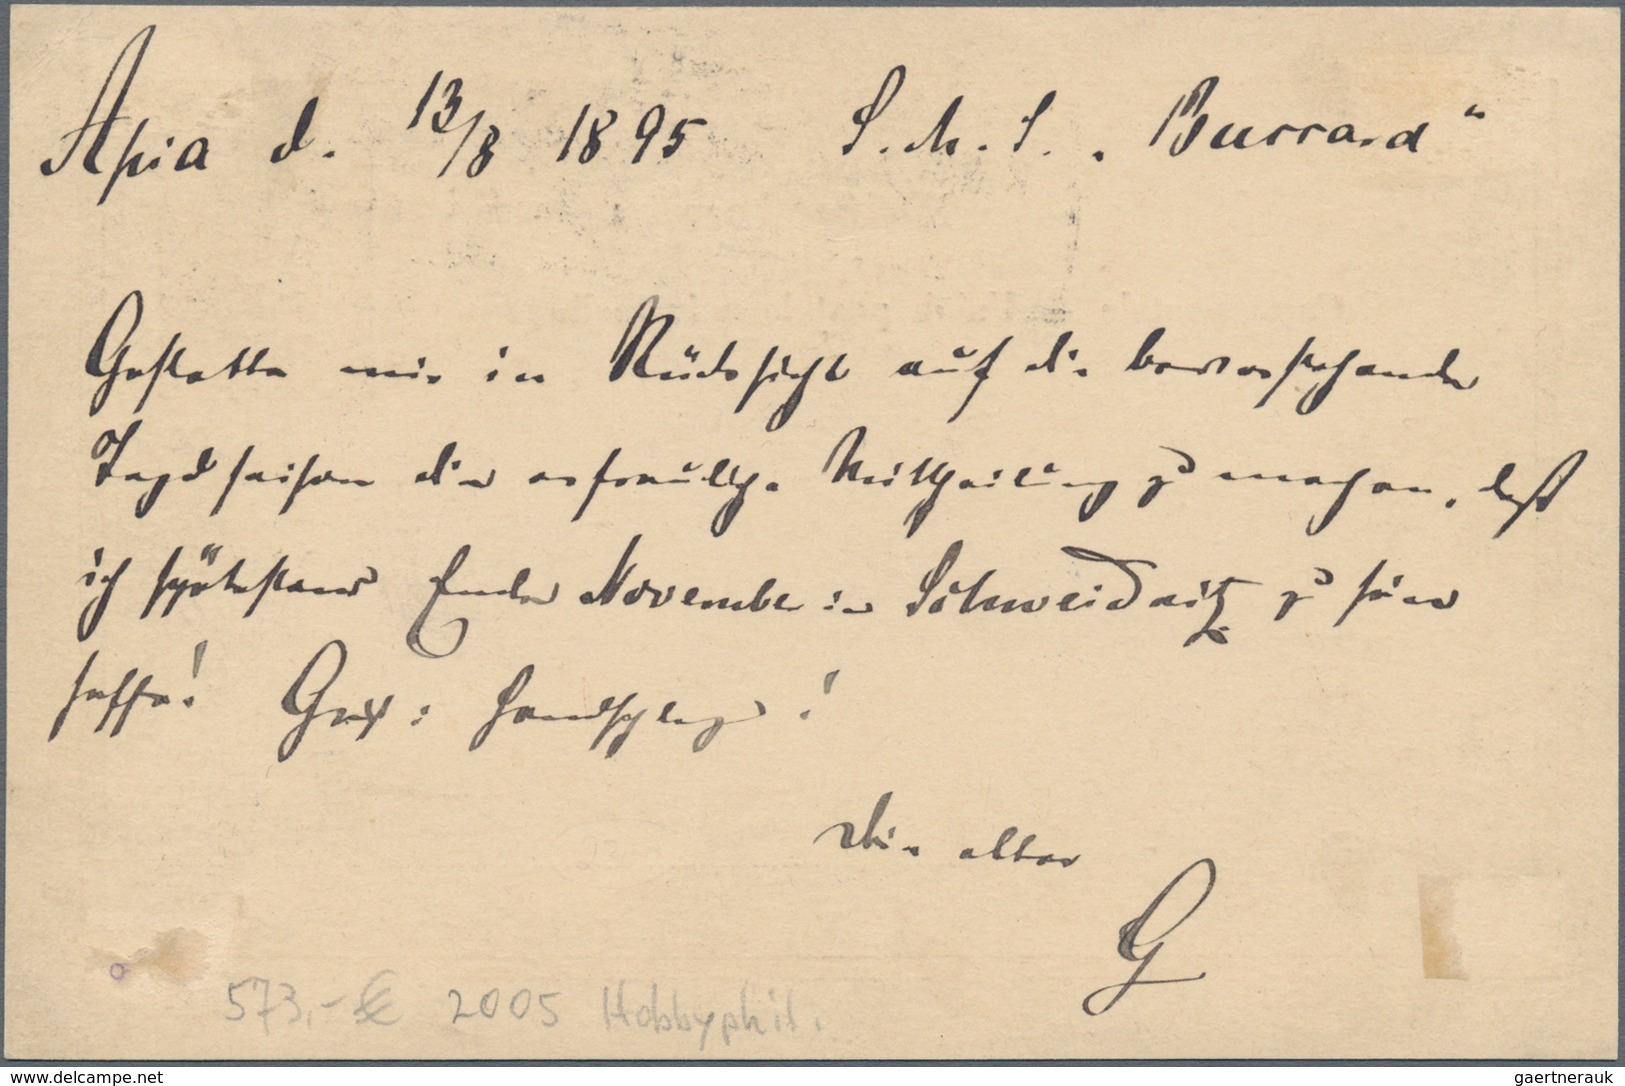 Apia d. 13/8 1895 S. M. S. „Bussard“
Gestatte mir in Rücksicht auf die bevorstehende
Jagdsaison die erfreuliche Mittheilung zu machen, daß
ich spätestens Ende November in Schweidnitz zu sein
hoffe! Gruß &
Dein alter
G
573,-€ 2005 Hobbyphil.
www.delcampe.net
gaertnerauk